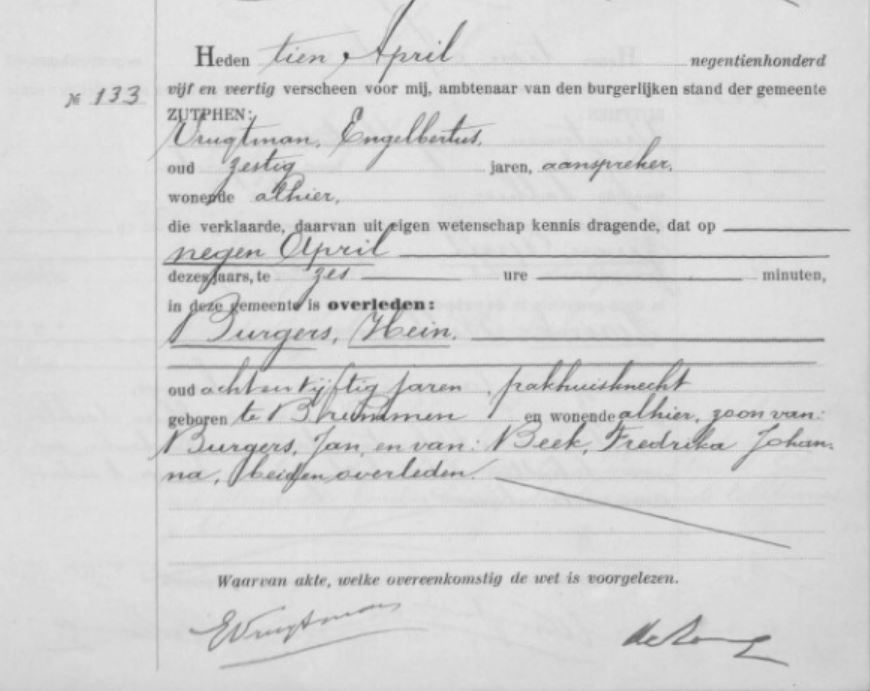 Heden tien April negentienhonderd
№ 133 vijf en veertig verscheen voor mij, ambtenaar van den burgerlijken stand der gemeente
ZUTPHEN:
Vrugtman, Engelbertus,
oud zestig jaren, aanspreker,
wonende alhier,
die verklaarde, daarvan uit eigen wetenschap kennis dragende, dat op
negen April
dezes jaars, te zes ure minuten,
in deze gemeente is overleden:
Burgers, Hein.
oud achtenvijftig jaren, pakhuisknecht
geboren te Brummen en wonende alhier, zoon van:
Burgers, Jan, en van: Beek, Fredrika Johan-
na, beiden overleden.
Waarvan akte, welke overeenkomstig de wet is voorgelezen.
EVrugtman